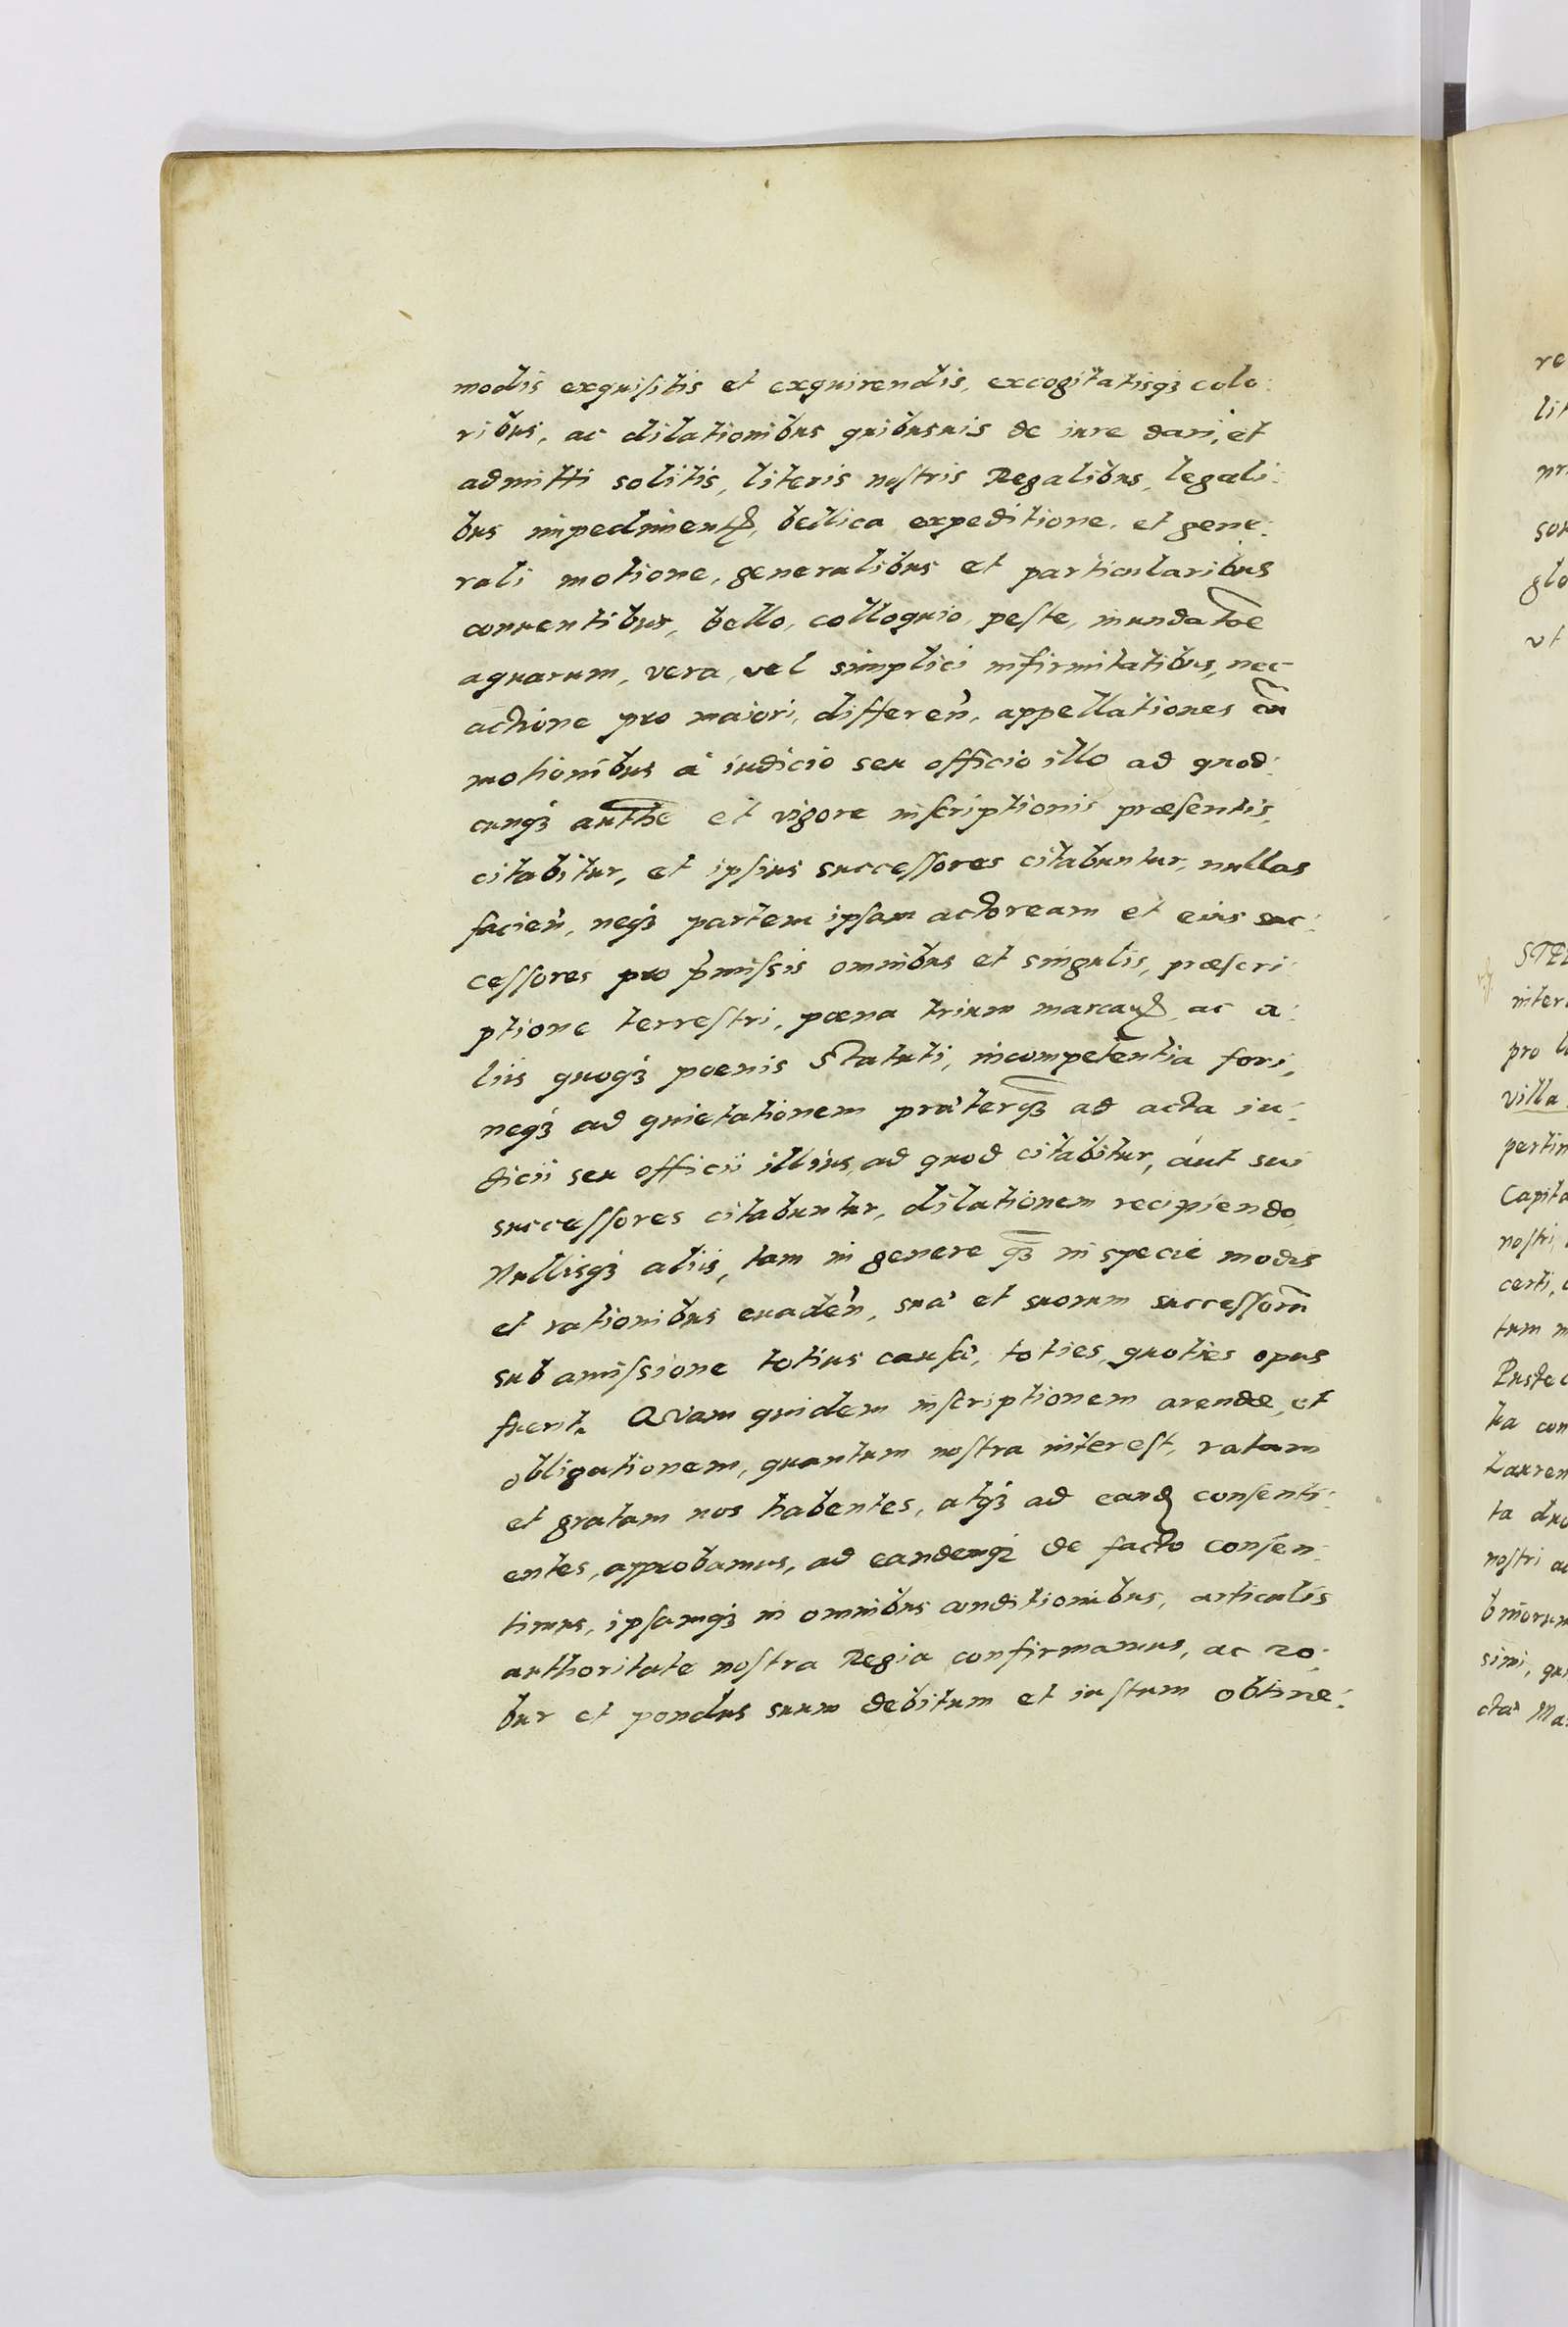 modis exquisitis et exquirendis, excogitatisqꜣ colo:
ribus, ac dilationibus quibusuis de iure dari, et
admitti solitis, literis nostris Regalibus, legali:
bus impedimentꝭ, bellica expeditione, et gene:
rali motione, generalibus et particularibus
conuentibus, bello, colloquio, peste, inundatōe
aquarum, vera, vel simplici infirmitatibus, nec
actione pro maiori, differen̄, appellationes cū
motionibus à iudicio seu officio illo ad quod:
cunqꜣ autħe et vigore inscriptionis præsentis,
citabitur, et ipsius successores citabuntur, nullas
facien̄, neqꜣ partem ipsam actoream et eius suc:
cessores pro p̄missis omnibus et singulis, præscri:
ptione terrestri, pœna trium marcarꝝ, ac a:
liis quoqꜣ poenis Statuti, incompetentia fori,
neqꜣ ad quietationem præterq̄ꜣ ad acta iu:
dicii seu officii illius, ad quod citabitur, aut sui
successores citabuntur, dilationem recipiendo,
Nullisqꜣ aliis, tam in genere q̄ꜣ in specie modis
et rationibus euaden̄, suà et suorum successorū
sub amissione totius causæ, toties, quoties opus
fuerit. Quam quidem inscriptionem arendæ, et
obligationem, quantum nostra interest, ratam
et gratam nos habentes, atqꜣ ad eandꝫ consenti:
entes, approbamus, ad eandemqꜣ de facto consen:
timus, ipsamqꜣ in omnibus conditionibus, articulis
authoritate nostra Regia confirmamus, ac ro:
bur et pondus suum debitum et iustum obtine:
re
lit
nr
sou
glo
vt
STE
inter
pro
villa
pertin
Capita
nostri
certi,
tum
ta con
Lauren
ta duo
nostri
simi,